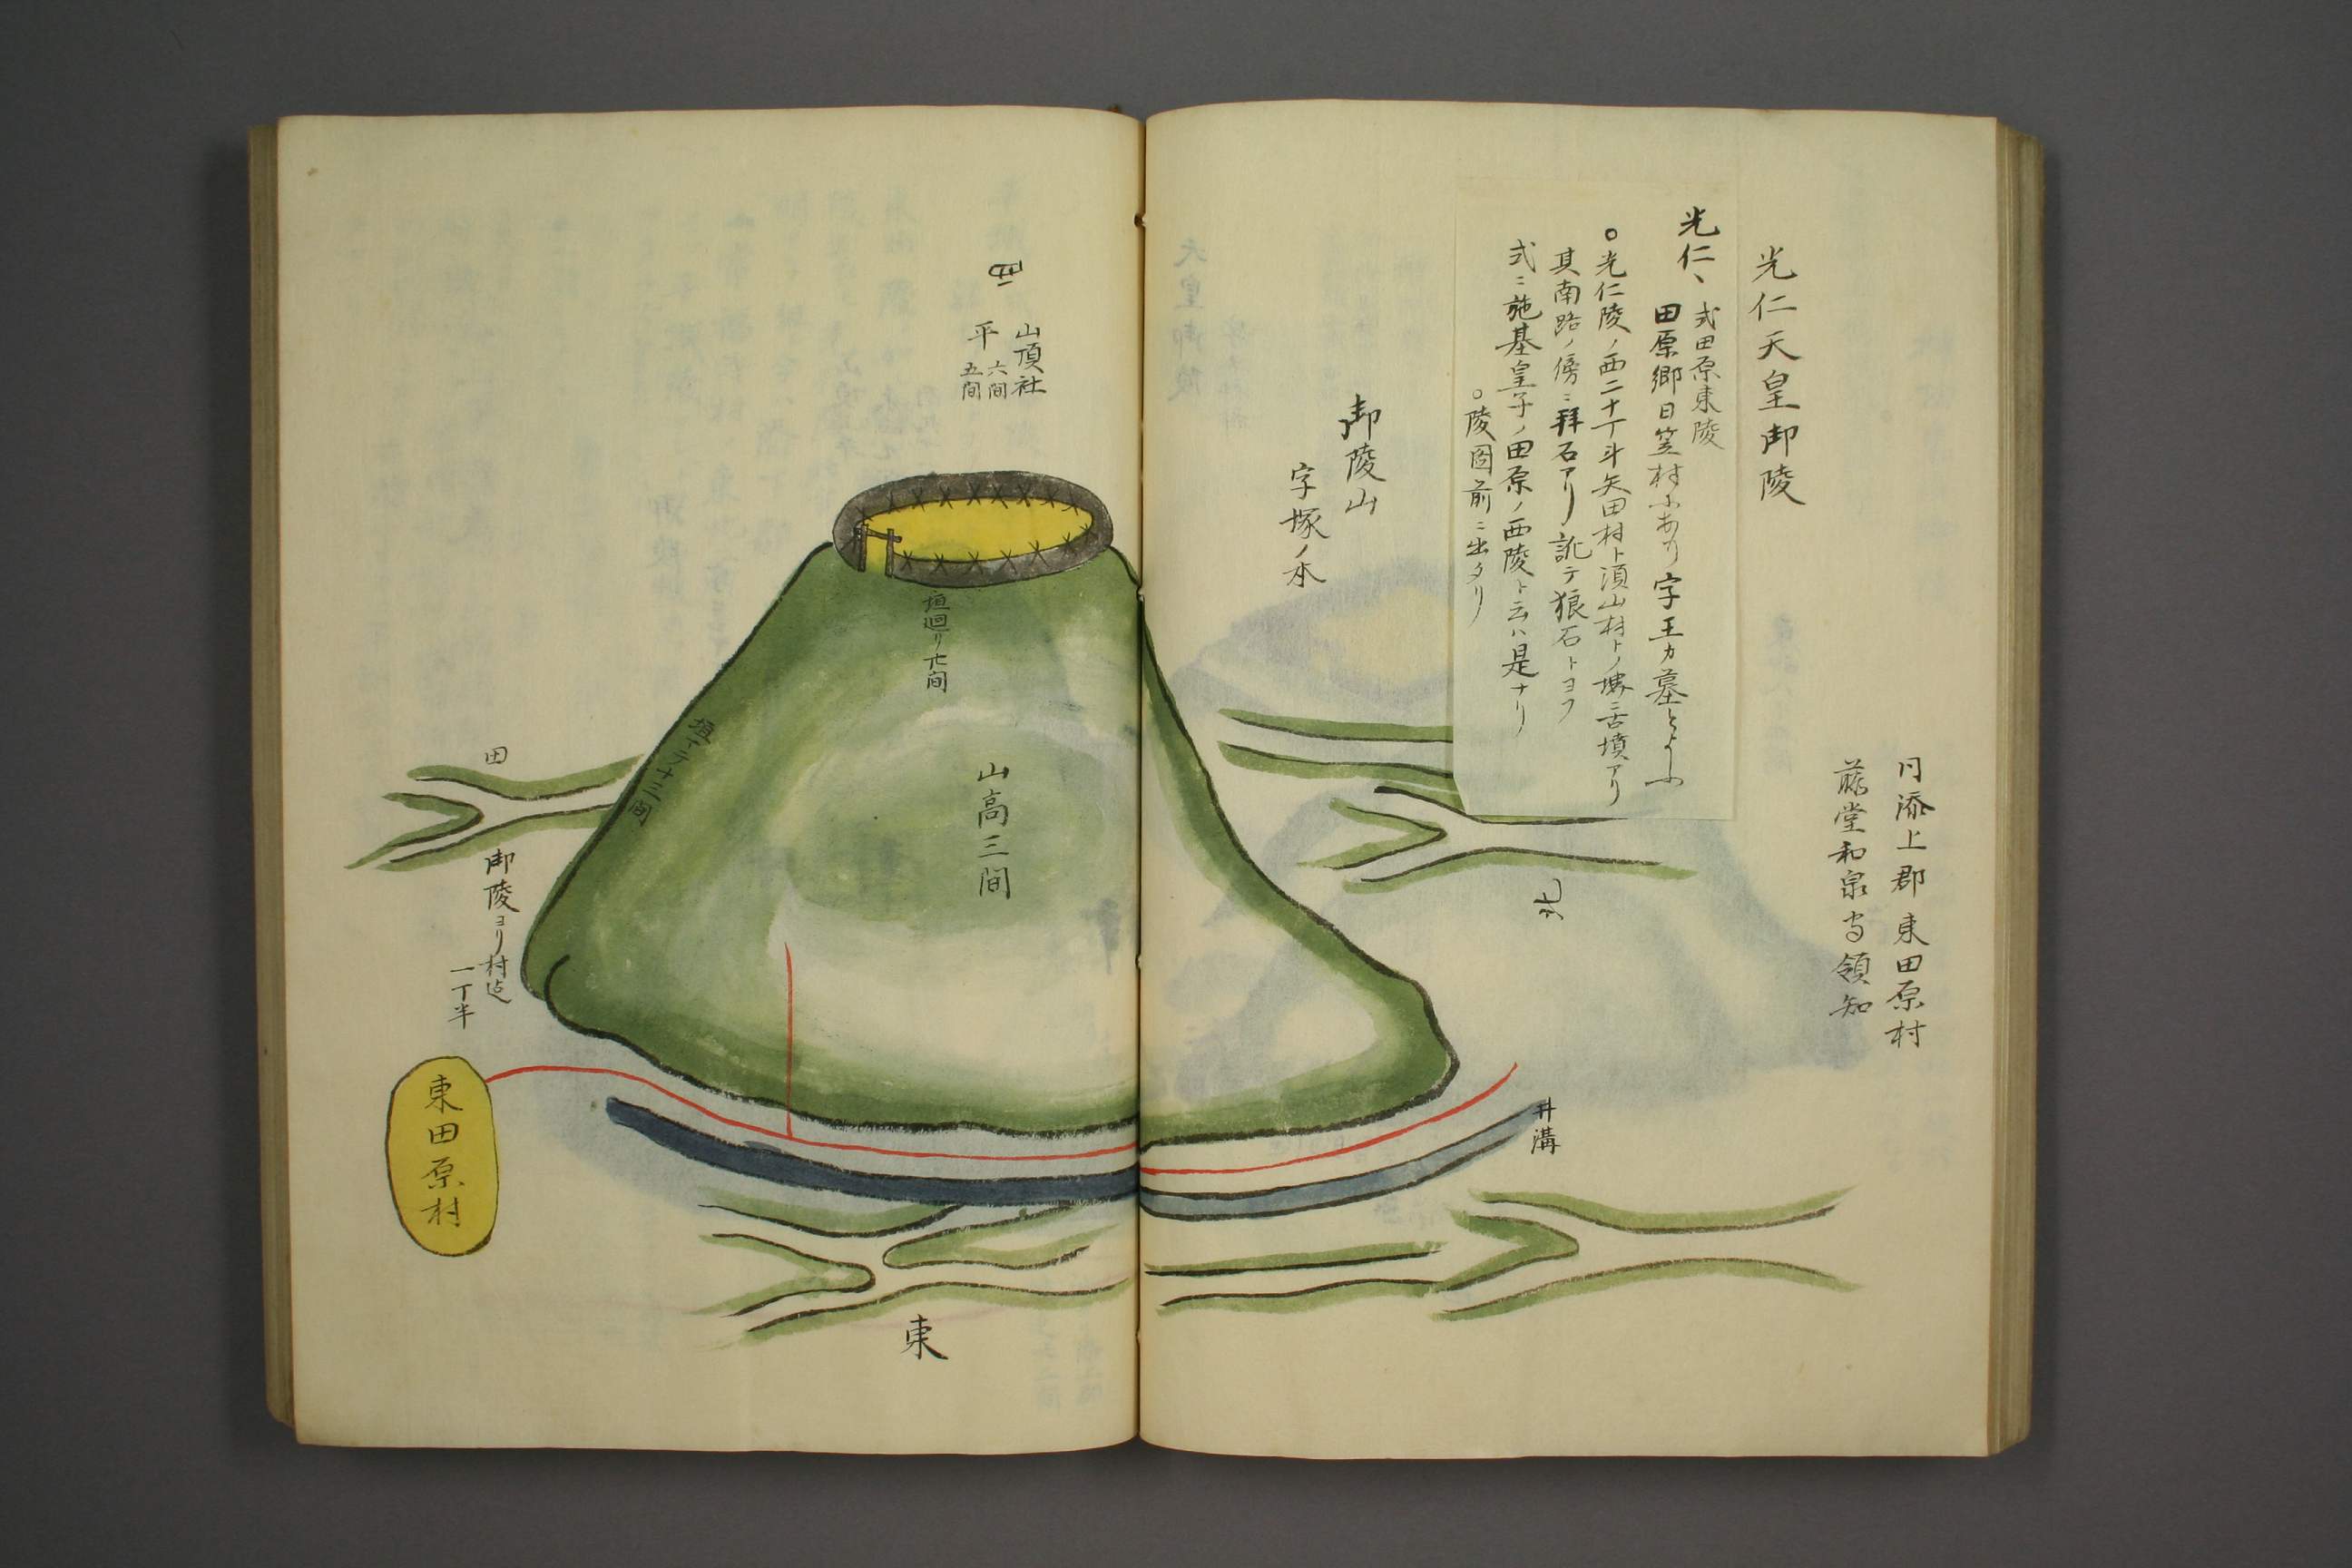 光仁天皇御陵
同添上郡東田原村
藤堂和泉守領知
光仁、式田原東陵
田原郷日笠村にあり字王カ墓といふ
○光仁陵ノ西二十丁斗矢田村ト須山村トノ堺ニ古墳アリ
其南路ノ傍ニ拜石アリ訛テ狼石トヨフ
式ニ施基皇子ノ田原ノ西陵ト云ハ是ナリ
○陵圖前ニ出タリ
御陵山
字塚ノ本
北
井溝
西
山頂社
平
六間
五間
垣廻リ廿間
山高三間
田
御陵ヨリ村迄
一丁半
東田原村
東